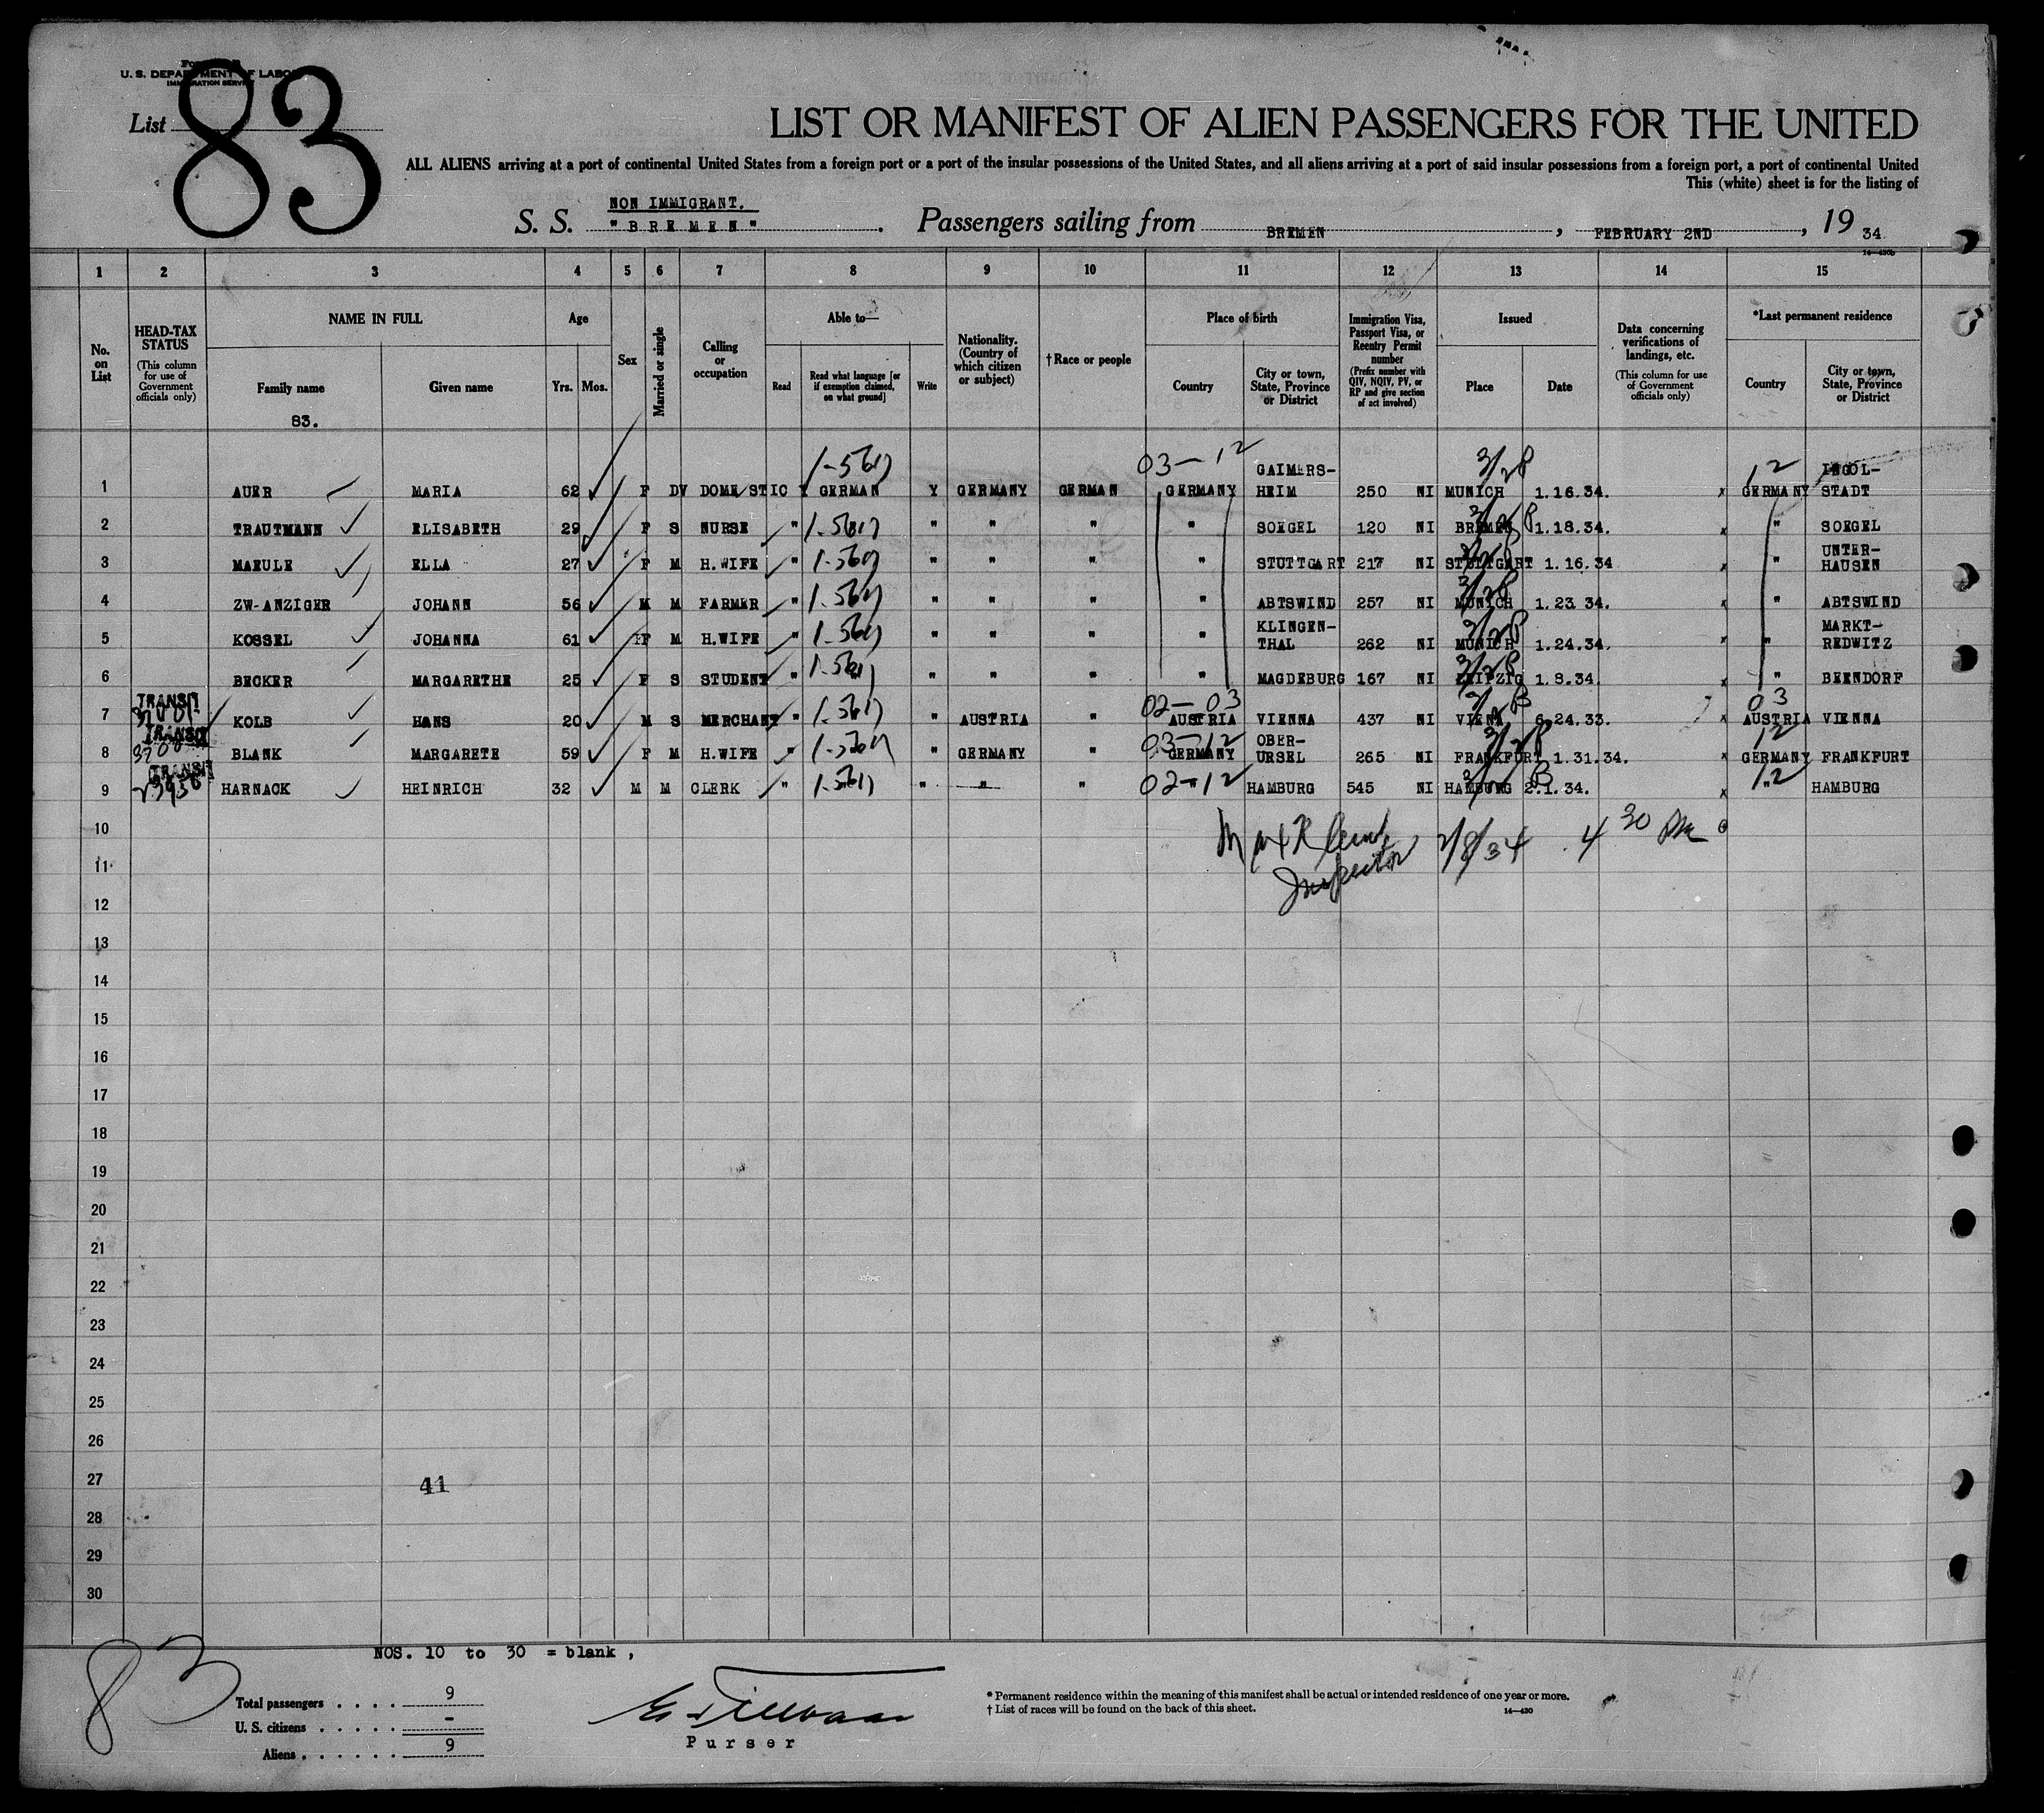 U. S. DEPARTMENT OF LABOR
IMMIGRATION SERVICE
List 83
LIST OR MANIFEST OF ALIEN PASSENGERS FOR THE UNITED
ALL ALIENS arriving at a port of continental United States from a foreign port or a port of the insular possessions of the United States, and all aliens arriving at a port of said insular possessions from a foreign port, a port of continental United
This (white) sheet is for the listing of
NON IMMIGRANT.
S. S. "BREMEN" . Passengers sailing from BREMEN , FEBRUARY 2ND , 19 34
14—430b
1 2 3 4 5 6 7 8 9 10 11 12 13 14 15
No. on List
HEAD-TAX STATUS
(This column for use of Government officials only)
NAME IN FULL
Family name
Given name
83.
Age
Yrs. Mos.
Sex
Married or single
Calling or occupation
Able to—
Read
Read what language [or if exemption claimed, on what ground]
Write
Nationality. (Country of which citizen or subject)
† Race or people
Place of birth
Country
City or town, State, Province or District
Immigration Visa, Passport Visa, or Reentry Permit number
(Prefix number with QIV, NQIV, PV, or RP and give section of act involved)
Issued
Place
Date
Data concerning verifications of landings, etc.
(This column for use of Government officials only)
*Last permanent residence
Country
City or town, State, Province or District
03-12 GAIMERS- 12 INGOL-
1 AUER MARIA 62 F DV DOMESTIC Y GERMAN Y GERMANY GERMAN GERMANY HEIM 250 NI MUNICH 1.16.34. x GERMANY STADT
2 TRAUTMANN ELISABETH 29 F S NURSE " " " " " SOEGEL 120 NI BREMEN 1.18.34. x " SOEGEL
UNTER-
3 MAEULE ELLA 27 F M H.WIFE " " " " " STUTTGART 217 NI STUTTGART 1.16.34 x " HAUSEN
4 ZW-ANZIGER JOHANN 56 M M FARMER " " " " " ABTSWIND 257 NI MUNICH 1.23.34. x " ABTSWIND
KLINGEN- MARKT-
5 KOSSEL JOHANNA 61 F M H.WIFE " " " " " THAL 262 NI MUNICH 1.24.34. x " REDWITZ
6 BECKER MARGARETHE 25 F S STUDENT " " " " " MAGDEBURG 167 NI LEIPZIG 1.8.34. x " BERNDORF
TRANSIT 02-03 03
7 KOLB HANS 20 M S MERCHANT " " AUSTRIA " AUSTRIA VIENNA 437 NI VIENNA 6.24.33. x AUSTRIA VIENNA
TRANSIT 03-12 OBER- 12
8 BLANK MARGARETE 59 F M H.WIFE " " GERMANY " GERMANY URSEL 265 NI FRANKFURT 1.31.34. x GERMANY FRANKFURT
TRANSIT 02-12 12
9 HARNACK HEINRICH 32 M M CLERK " " " " " HAMBURG 545 NI HAMBURG 2.1.34. x " HAMBURG
10
Inspector 2/8/34 4 30 PM
11
12
13
14
15
16
17
18
19
20
21
22
23
24
25
26
27 41
28
29
30
NOS. 10 to 30 = blank ,
83
Total passengers . . . . 9
U. S. citizens . . . . . -
Aliens . . . . . . 9
Purser
* Permanent residence within the meaning of this manifest shall be actual or intended residence of one year or more.
† List of races will be found on the back of this sheet.
14—430